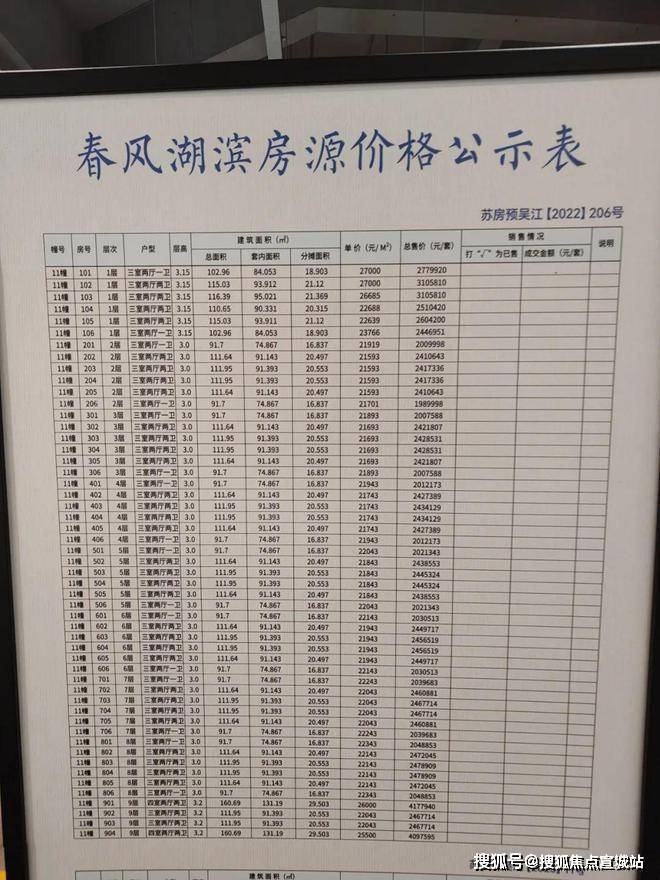 春风湖滨房源价格公示表
苏房预吴江【2022】206号
幢号 房号 层次 户型 层高 建筑面积(㎡) 单价(元/M²) 总售价(元/套) 销售情况 说明
总面积 套内面积 分摊面积 打“√”为已售 成交金额(元/套)
11幢 101 1层 三室两厅一卫 3.15 102.96 84.053 18.903 27000 2779920
11幢 102 1层 三室两厅两卫 3.15 115.03 93.912 21.12 27000 3105810
11幢 103 1层 三室两厅两卫 3.15 116.39 95.021 21.369 26685 3105810
11幢 104 1层 三室两厅两卫 3.15 110.65 90.331 20.315 22688 2510420
11幢 105 1层 三室两厅两卫 3.15 115.03 93.911 21.12 22639 2604200
11幢 106 1层 三室两厅一卫 3.15 102.96 84.053 18.903 23766 2446951
11幢 201 2层 三室两厅一卫 3.0 91.7 74.867 16.837 21919 2009998
11幢 202 2层 三室两厅两卫 3.0 111.64 91.143 20.497 21593 2410643
11幢 203 2层 三室两厅两卫 3.0 111.95 91.393 20.553 21593 2417336
11幢 204 2层 三室两厅两卫 3.0 111.95 91.393 20.553 21593 2417336
11幢 205 2层 三室两厅两卫 3.0 111.64 91.143 20.497 21593 2410643
11幢 206 2层 三室两厅一卫 3.0 91.7 74.867 16.837 21701 1989998
11幢 301 3层 三室两厅一卫 3.0 91.7 74.867 16.837 21893 2007588
11幢 302 3层 三室两厅两卫 3.0 111.64 91.143 20.497 21693 2421807
11幢 303 3层 三室两厅两卫 3.0 111.95 91.393 20.553 21693 2428531
11幢 304 3层 三室两厅两卫 3.0 111.95 91.393 20.553 21693 2428531
11幢 305 3层 三室两厅两卫 3.0 111.64 91.143 20.497 21693 2421807
11幢 306 3层 三室两厅一卫 3.0 91.7 74.867 16.837 21893 2007588
11幢 401 4层 三室两厅一卫 3.0 91.7 74.867 16.837 21943 2012173
11幢 402 4层 三室两厅两卫 3.0 111.64 91.143 20.497 21743 2427389
11幢 403 4层 三室两厅两卫 3.0 111.95 91.393 20.553 21743 2434129
11幢 404 4层 三室两厅两卫 3.0 111.95 91.393 20.553 21743 2434129
11幢 405 4层 三室两厅两卫 3.0 111.64 91.143 20.497 21743 2427389
11幢 406 4层 三室两厅一卫 3.0 91.7 74.867 16.837 21943 2012173
11幢 501 5层 三室两厅一卫 3.0 91.7 74.867 16.837 22043 2021343
11幢 502 5层 三室两厅两卫 3.0 111.64 91.143 20.497 21843 2438553
11幢 503 5层 三室两厅两卫 3.0 111.95 91.393 20.553 21843 2445324
11幢 504 5层 三室两厅两卫 3.0 111.95 91.393 20.553 21843 2445324
11幢 505 5层 三室两厅两卫 3.0 111.64 91.143 20.497 21843 2438553
11幢 506 5层 三室两厅一卫 3.0 91.7 74.867 16.837 22043 2021343
11幢 601 6层 三室两厅一卫 3.0 91.7 74.867 16.837 22143 2030513
11幢 602 6层 三室两厅两卫 3.0 111.64 91.143 20.497 21943 2449717
11幢 603 6层 三室两厅两卫 3.0 111.95 91.393 20.553 21943 2456519
11幢 604 6层 三室两厅两卫 3.0 111.95 91.393 20.553 21943 2456519
11幢 605 6层 三室两厅两卫 3.0 111.64 91.143 20.497 21943 2449717
11幢 606 6层 三室两厅一卫 3.0 91.7 74.867 16.837 22143 2030513
11幢 701 7层 三室两厅一卫 3.0 91.7 74.867 16.837 22243 2039683
11幢 702 7层 三室两厅两卫 3.0 111.64 91.143 20.497 22043 2460881
11幢 703 7层 三室两厅两卫 3.0 111.95 91.393 20.553 22043 2467714
11幢 704 7层 三室两厅两卫 3.0 111.95 91.393 20.553 22043 2467714
11幢 705 7层 三室两厅两卫 3.0 111.64 91.143 20.497 22043 2460881
11幢 706 7层 三室两厅一卫 3.0 91.7 74.867 16.837 22243 2039683
11幢 801 8层 三室两厅一卫 3.0 91.7 74.867 16.837 22343 2048853
11幢 802 8层 三室两厅两卫 3.0 111.64 91.143 20.497 22143 2472045
11幢 803 8层 三室两厅两卫 3.0 111.95 91.393 20.553 22143 2478909
11幢 804 8层 三室两厅两卫 3.0 111.95 91.393 20.553 22143 2478909
11幢 805 8层 三室两厅两卫 3.0 111.64 91.143 20.497 22143 2472045
11幢 806 8层 三室两厅一卫 3.0 91.7 74.867 16.837 22343 2048853
11幢 901 9层 四室两厅两卫 3.2 160.69 131.19 29.503 26000 4177940
11幢 902 9层 三室两厅两卫 3.2 111.95 91.393 20.553 22043 2467714
11幢 903 9层 三室两厅两卫 3.2 111.95 91.393 20.553 22043 2467714
11幢 904 9层 四室两厅两卫 3.2 160.69 131.19 29.503 25500 4097595
建筑面积(㎡)
搜狐号@搜狐焦点宣城站